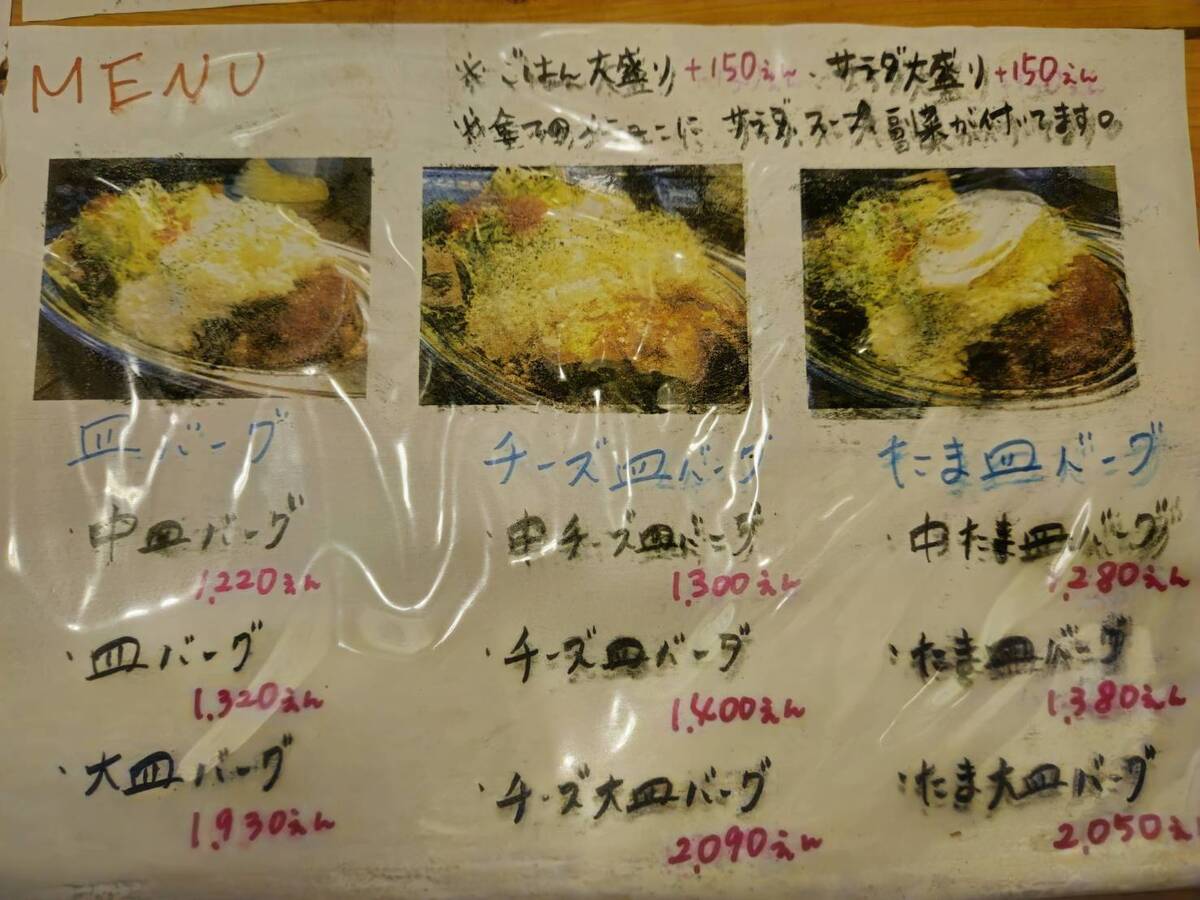 MENU
※ ごはん大盛り +150えん、サラダ大盛り +150えん
※全てのメニューに、サラダ、スープ、副菜が付いてます。
皿バーグ
チーズ皿バーグ
たま皿バーグ
・中皿バーグ
1,220えん
・皿バーグ
1,320えん
・大皿バーグ
1,930えん
・中チーズ皿バーグ
1,300えん
・チーズ皿バーグ
1,400えん
・チーズ大皿バーグ
2,090えん
・中たま皿バーグ
1,280えん
・たま皿バーグ
1,380えん
・たま大皿バーグ
2,050えん